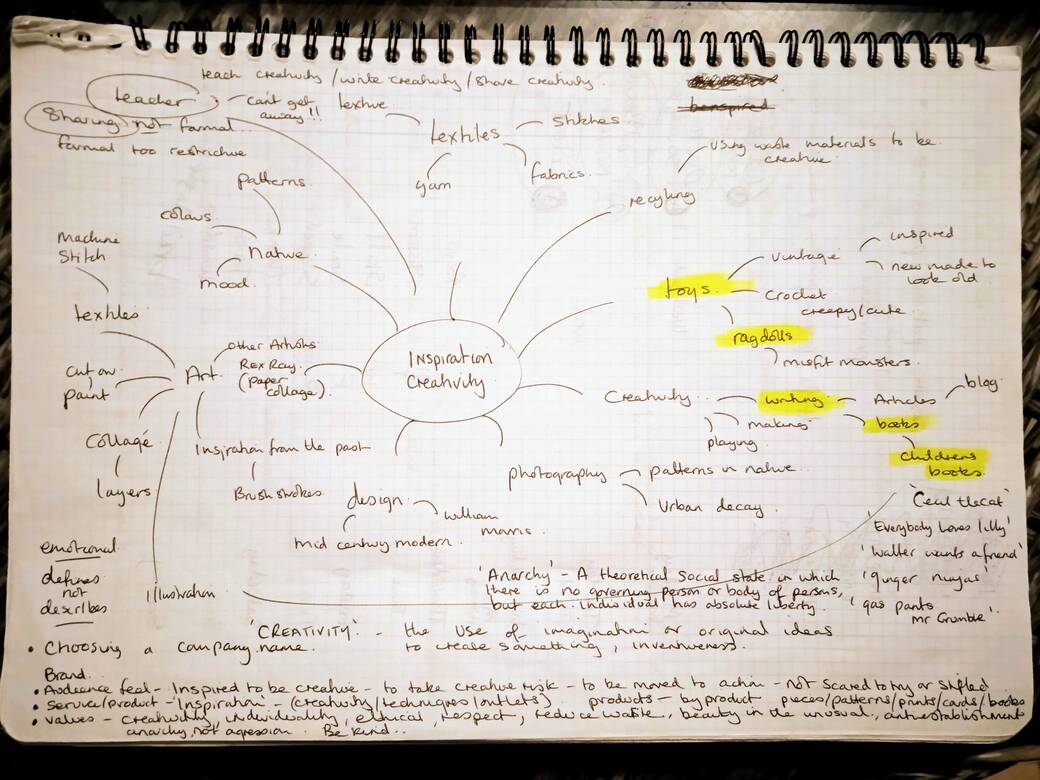 teach creativity / write creativity / share creativity.
teacher - can't get away!!
Sharing. not formal
formal too restrictive
benspired
textiles
texture
stitches
yarn
fabrics.
recycling
using waste materials to be creative
Nature.
patterns.
colours
mood.
toys.
vintage
inspired
new made to look old
Crochet
creepy/cute
ragdolls
misfit monsters.
Inspiration
Creativity.
Creativity.
writing
Articles
blog
books
childrens books
making
playing
'Cecil the cat'
'Everybody Loves lilly'
'Walter wants a friend'
'ginger ninjas'
'gas pants
Mr Grumble'.
Art.
other Artists.
Rex Ray.
(paper collage).
textiles
Machine
Stitch
cut out
paint
Collage
layers
Inspiration from the past
Brush strokes.
Illustration
design.
William Morris.
Mid century modern.
photography
patterns in nature.
Urban decay.
emotional.
defines
not
describes
'Anarchy' - A theoretical social state in which
there is no governing person or body of persons,
but each individual has absolute liberty.
'CREATIVITY'. - the use of imagination or original ideas
to create something, inventiveness.
• Choosing a company name.
Brand.
• Audience feel - Inspired to be creative - to take creative risk - to be moved to action - not scared to try or stifled
• service/product - Inspiration - (creativity/techniques/outlets) products - byproduct pieces/patterns/prints/cards/books
• values - creativity, individuality, ethical, respect, reduce waste, beauty in the unusual, anti establishment
anarchy, not agression. Be kind..